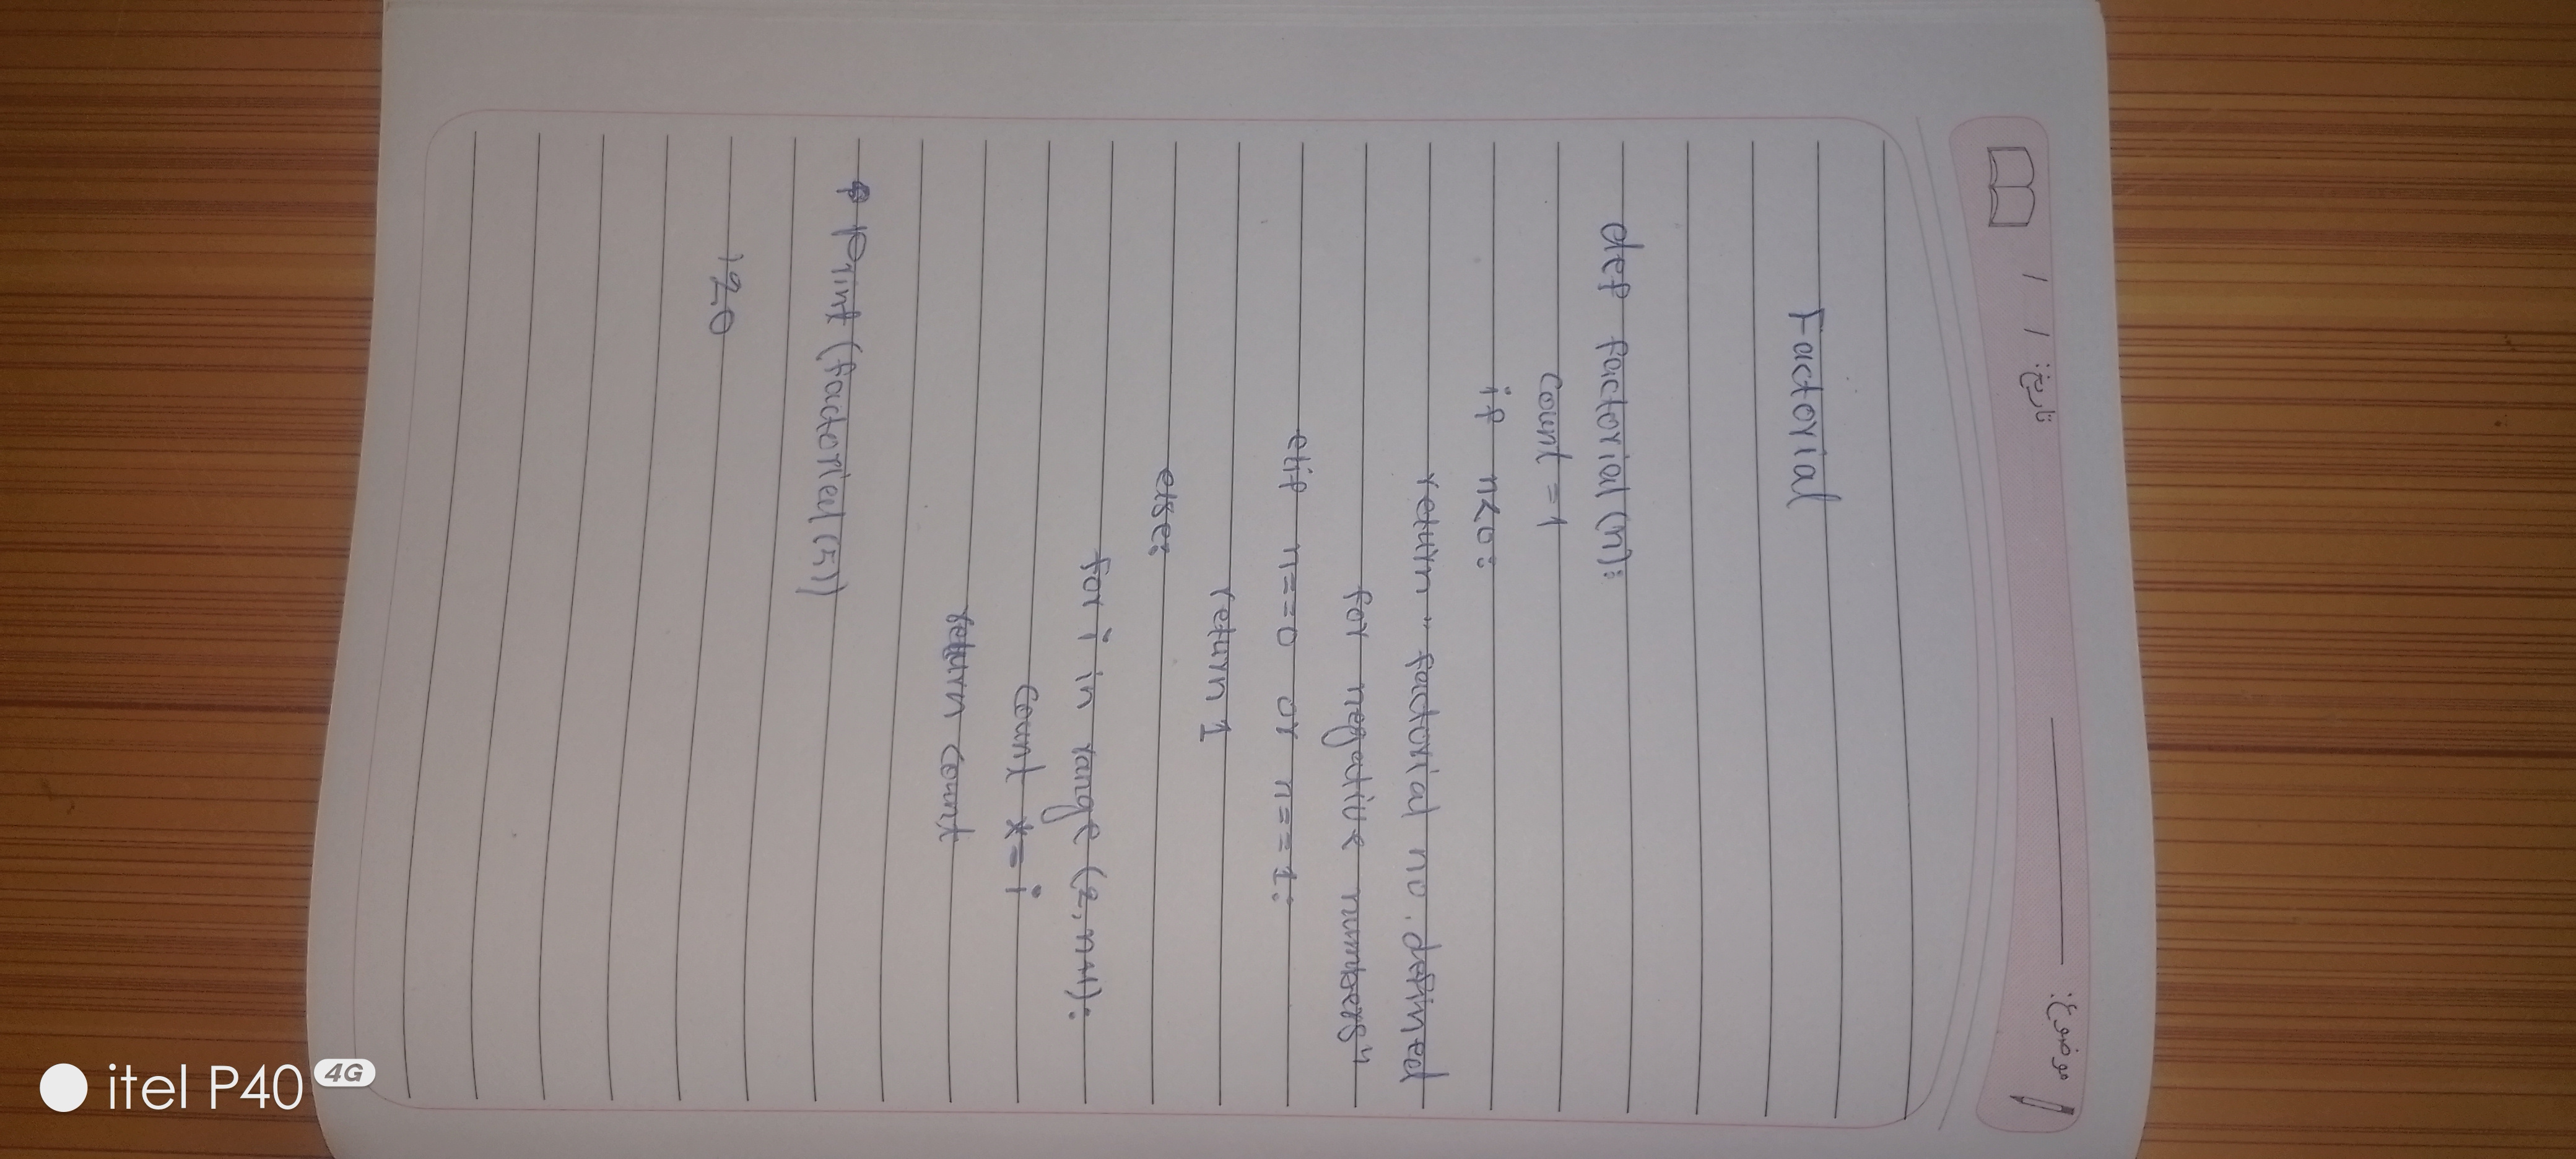 موضوع: تاریخ: / /
Factorial
def factorial(n):
count = 1
if n<0:
return " factorial no. defined
for negative numbers"
elif n==0 or n==1:
return 1
else:
for i in range (2, n+1):
count *= i
return count
Print (factoriel(5))
120
itel P40 4G